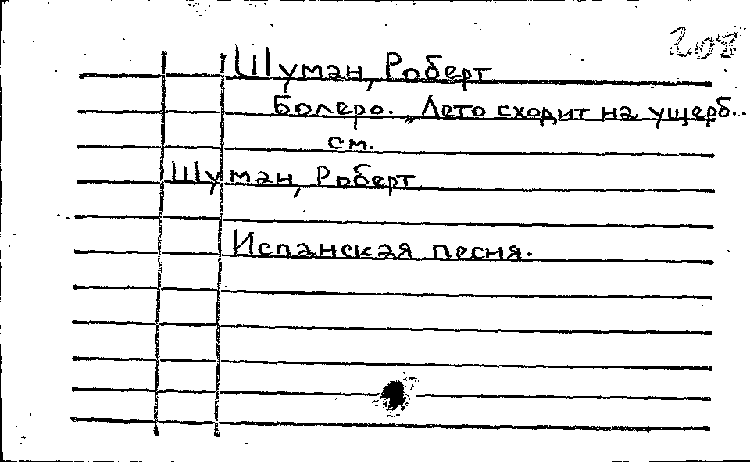 208
Шуман, Роберт
Болеро. „Лето сходит на ущерб..
см.
Шуман, Роберт
Испанская песня.